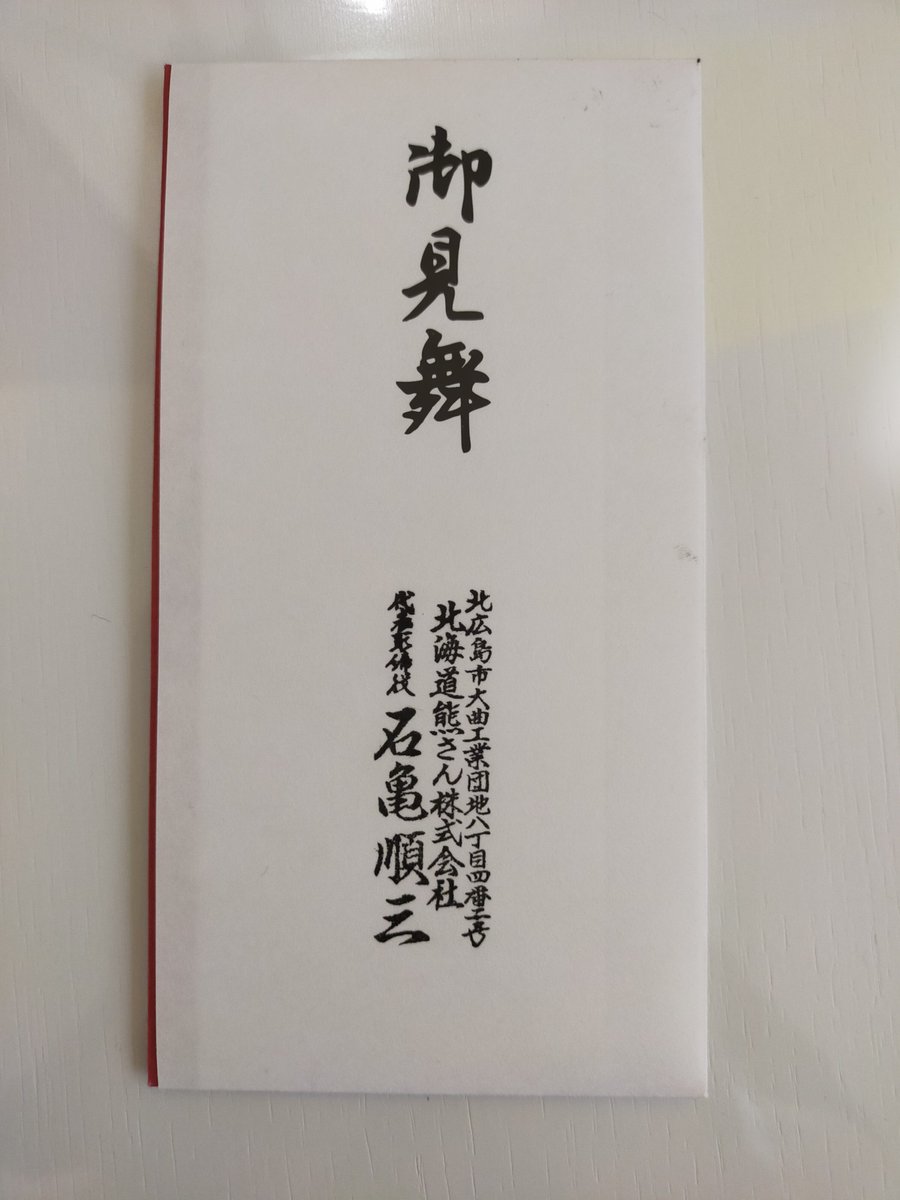 御見舞
北広島市大曲工業団地八丁目四番二号
北海道熊さん株式会社
代表取締役 石亀順三